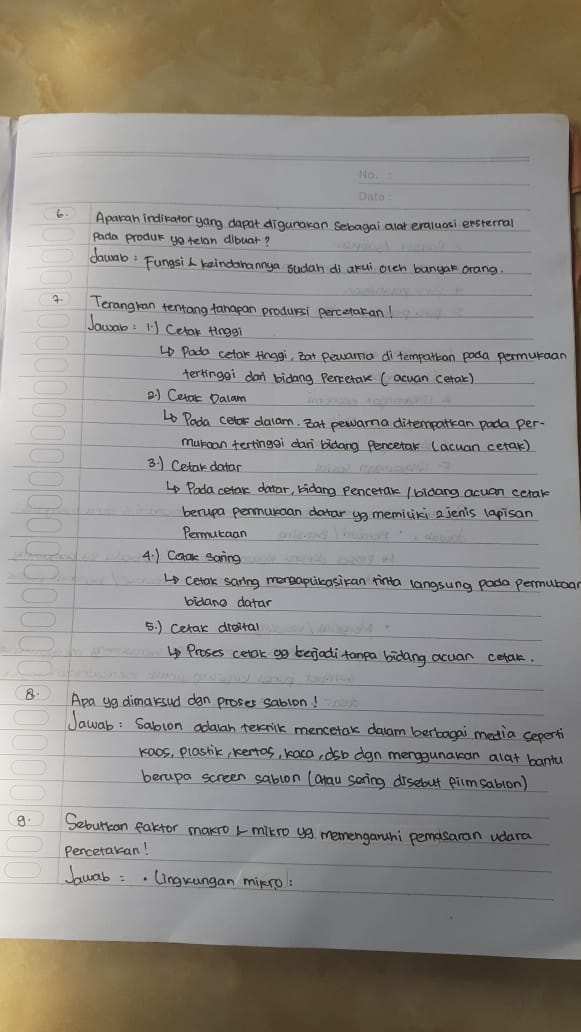 No. :
Date :
6. Apakah indikator yang dapat digunakan sebagai alat evaluasi eksternal
pada produk yg telah dibuat?
Jawab : Fungsi & keindahannya sudah di akui oleh banyak orang.
7. Terangkan tentang tahapan produksi percetakan!
Jawab : 1.) Cetak tinggi
↳ Pada cetak tinggi, zat pewarna di tempatkan pada permukaan
tertinggi dari bidang Pencetak (acuan cetak)
2.) Cetak Dalam
↳ Pada cetak dalam. zat pewarna ditempatkan pada per-
mukaan tertinggi dari bidang Pencetak (acuan cetak)
3.) Cetak datar
↳ Pada cetak datar, bidang pencetak / bidang acuan cetak
berupa permukaan datar yg memiliki 2 jenis lapisan
Permukaan
4.) Cetak saring
↳ Cetak saring mengaplikasikan tinta langsung pada permukaan
bidang datar
5.) Cetak digital
↳ Proses cetak yg terjadi tanpa bidang acuan cetak.
8. Apa yg dimaksud dgn proses sablon!
Jawab : Sablon adalah teknik mencetak dalam berbagai media seperti
kaos, plastik, kertas, kaca, dsb dgn menggunakan alat bantu
berupa screen sablon (atau sering disebut film sablon)
9. Sebutkan faktor makro & mikro yg memengaruhi pemasaran udara
percetakan!
Jawab : • Lingkungan mikro :